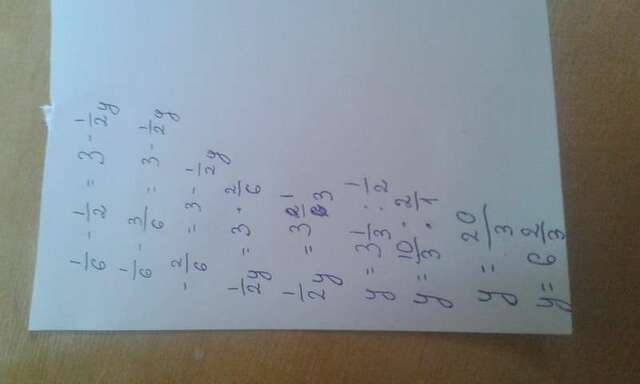 1/6 - 1/2 = 3 - 1/2 y
1/6 - 3/6 = 3 - 1/2 y
- 2/6 = 3 - 1/2 y
1/2 y = 3 · 2/6
1/2 y = 3 1/3
y = 3 1/3 : 1/2
y = 10/3 · 2/1
y = 20/3
y = 6 2/3